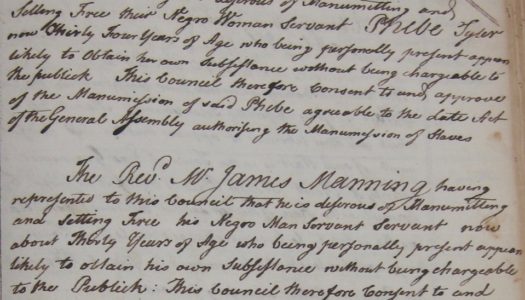 desirous of Manumitting and
Setting Free their Negro Woman Servant Phebe Tyler
now Thirty Four Years of Age who being personally present appears
likely to Obtain her own Subsistance without being chargeable to
the publick This Council therefore Consent to and approve
of the Manumission of said Phebe agreeable to the late Act
of the General Assembly authorising the Manumission of Slaves
The Revd. Mr. James Manning having
represented to this Council that he is desirous of Manumitting
and Setting Free his Negro Man Servant Servant now
about Thirty Years of Age who being personally present appears
likely to obtain his own Subsistance without being chargeable
to the Publick: This Council therefore Consent to and